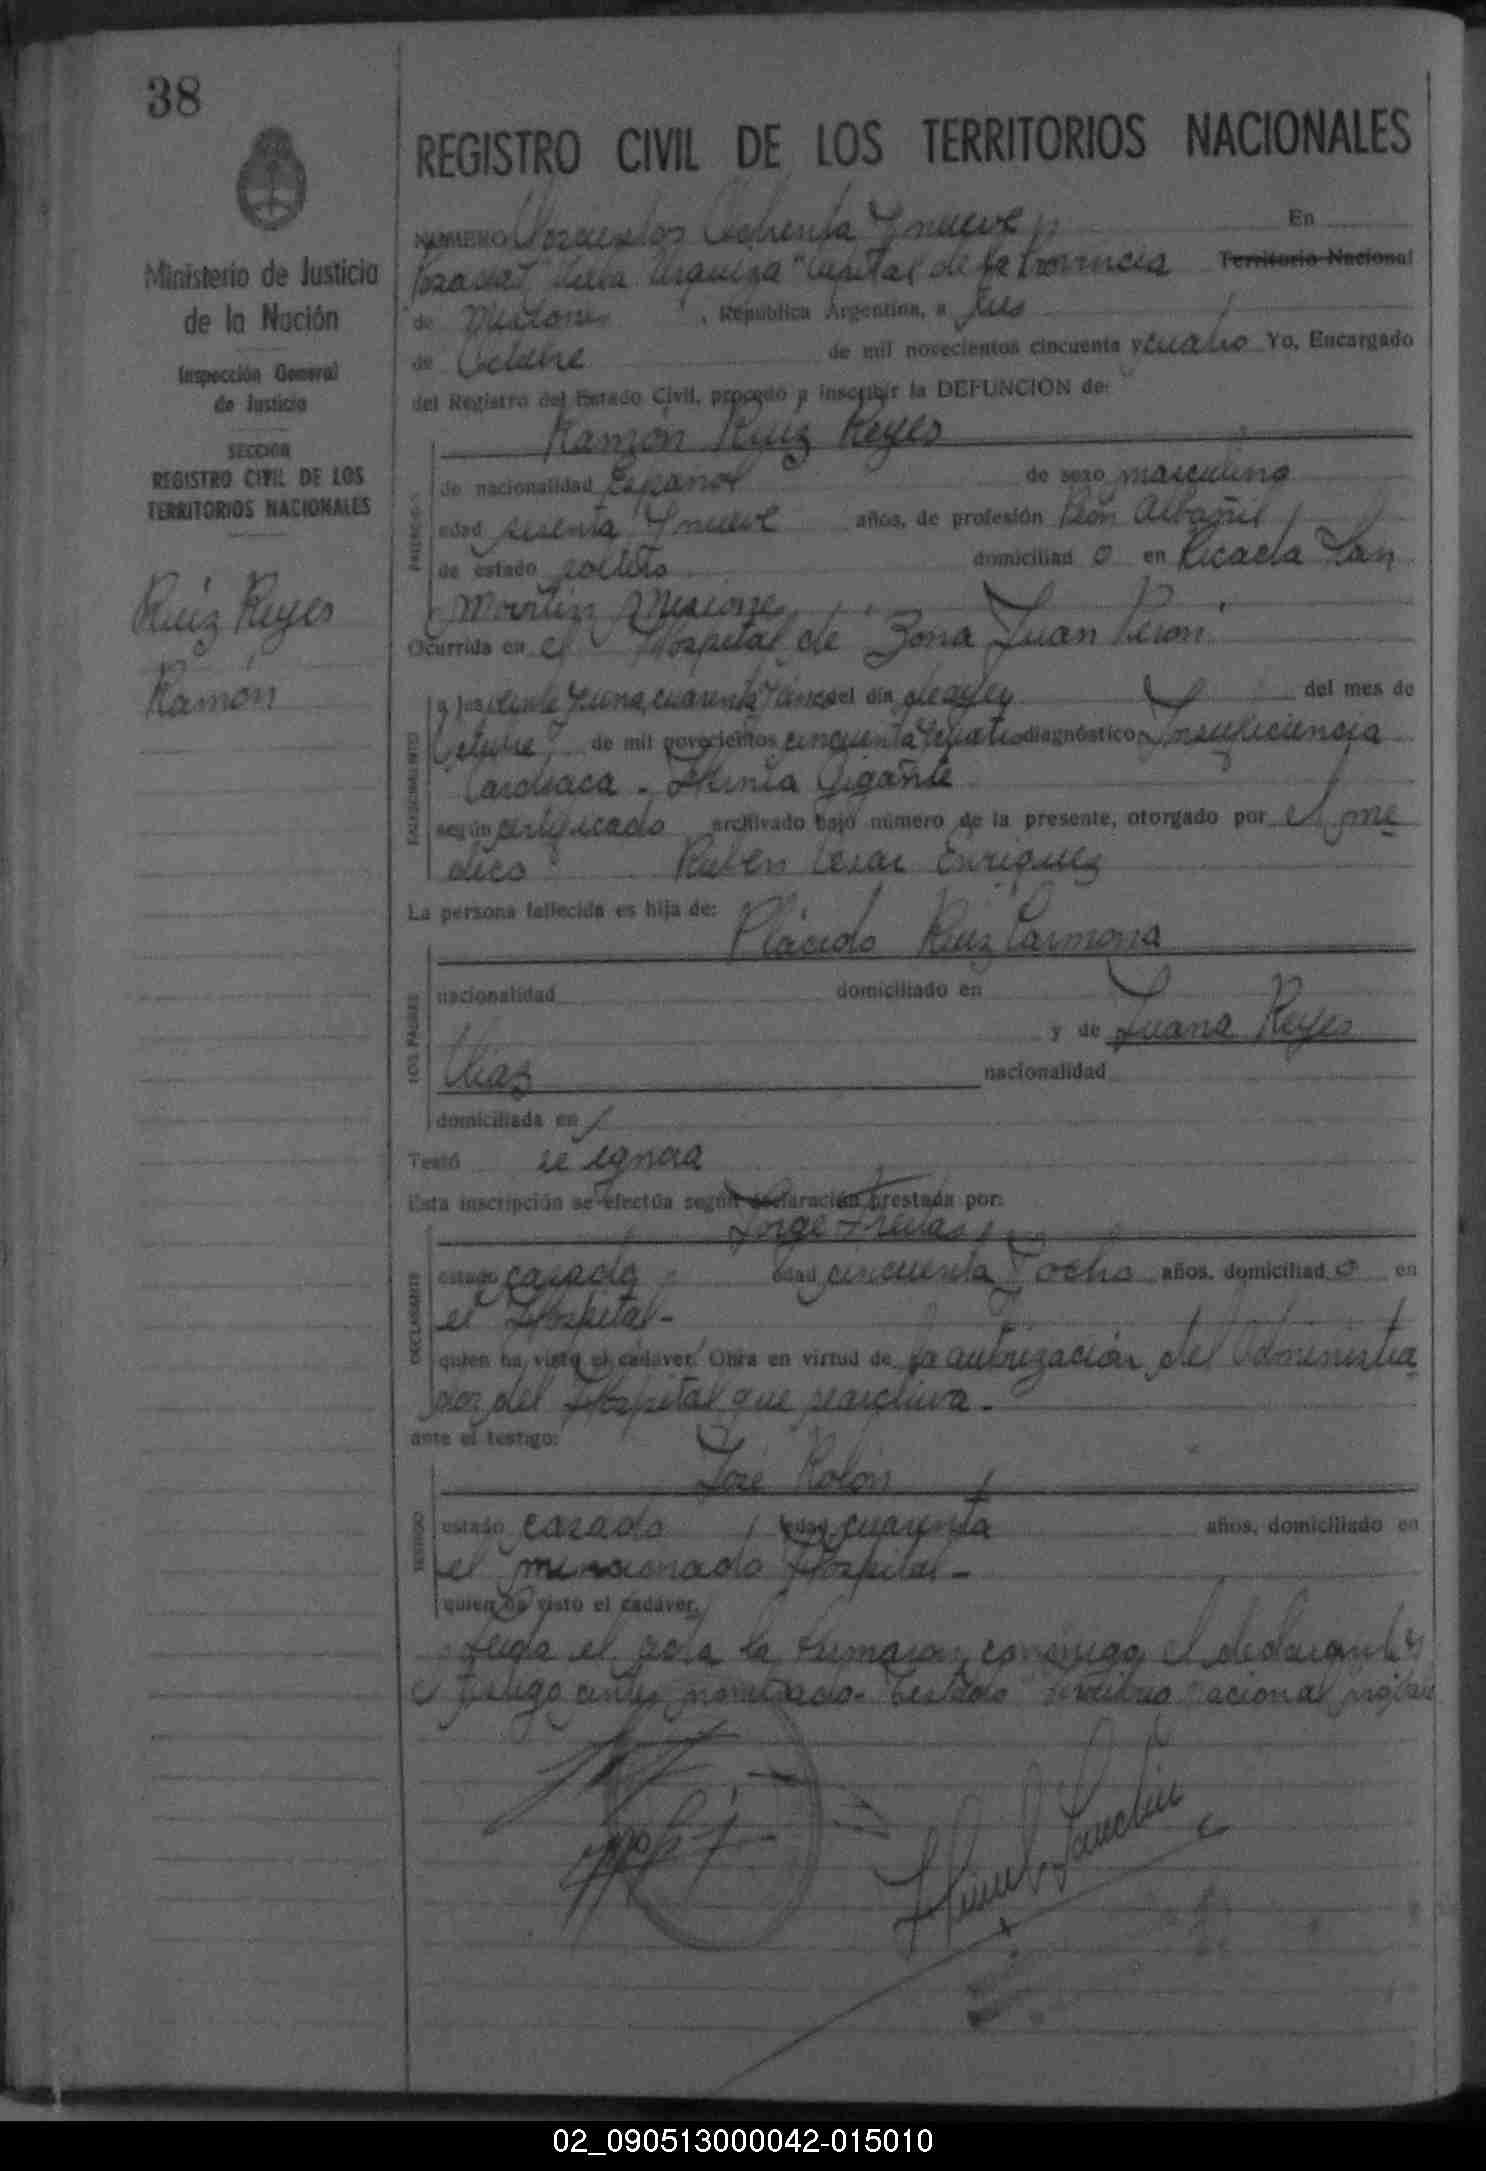 38
REGISTRO CIVIL DE LOS TERRITORIOS NACIONALES
Ministerio de Justicia
de la Nación
Inspección General
de Justicia
SECCION
REGISTRO CIVIL DE LOS
TERRITORIOS NACIONALES
Ruiz Reyes
Ramón
NUMERO Ochenta y nueve En
Posadas "Villa Urquiza" Capital de la Provincia Territorio Nacional
de Misiones, República Argentina, a tres
de Octubre de mil novecientos cincuenta y cuatro Yo, Encargado
del Registro del Estado Civil, procedo a inscribir la DEFUNCION de:
Ramón Ruiz Reyes
de nacionalidad Español de sexo masculino
edad sesenta y nueve años, de profesión Peón Albañil
de estado soltero domiciliad o en Picada San
Martín Misiones
Ocurrida en el Hospital de Zona Juan Perón
FALLECIMIENTO
a las veinte y una, cuarenta y cinco del día de ayer del mes de
Octubre de mil novecientos cincuenta y cuatro diagnóstico Insuficiencia
Cardiaca - Hernia Gigante
según certificado archivado bajo número de la presente, otorgado por el mé
dico Ruben Cesar Enriquez
La persona fallecida es hija de:
Plácido Ruiz Carmona
LOS PADRES
nacionalidad domiciliado en
y de Juana Reyes
nacionalidad
domiciliada en
Testó se ignora
Esta inscripción se efectúa según declaración prestada por:
Jorge Freitas
DECLARANTE
estado casado edad cincuenta y ocho años, domiciliad o en
el Hospital -
quien ha visto el cadáver. Obra en virtud de la autorización del Administra
dor del Hospital que se archiva -
ante el testigo:
José Rolón
TESTIGO
estado casado edad cuarenta años, domiciliado en
el mencionado Hospital -
quien ha visto el cadáver.
Leida el acta la firmaron conmigo el declarante y
el testigo antes nombrado - Testado Territorio Nacional no vale
02_090513000042-015010